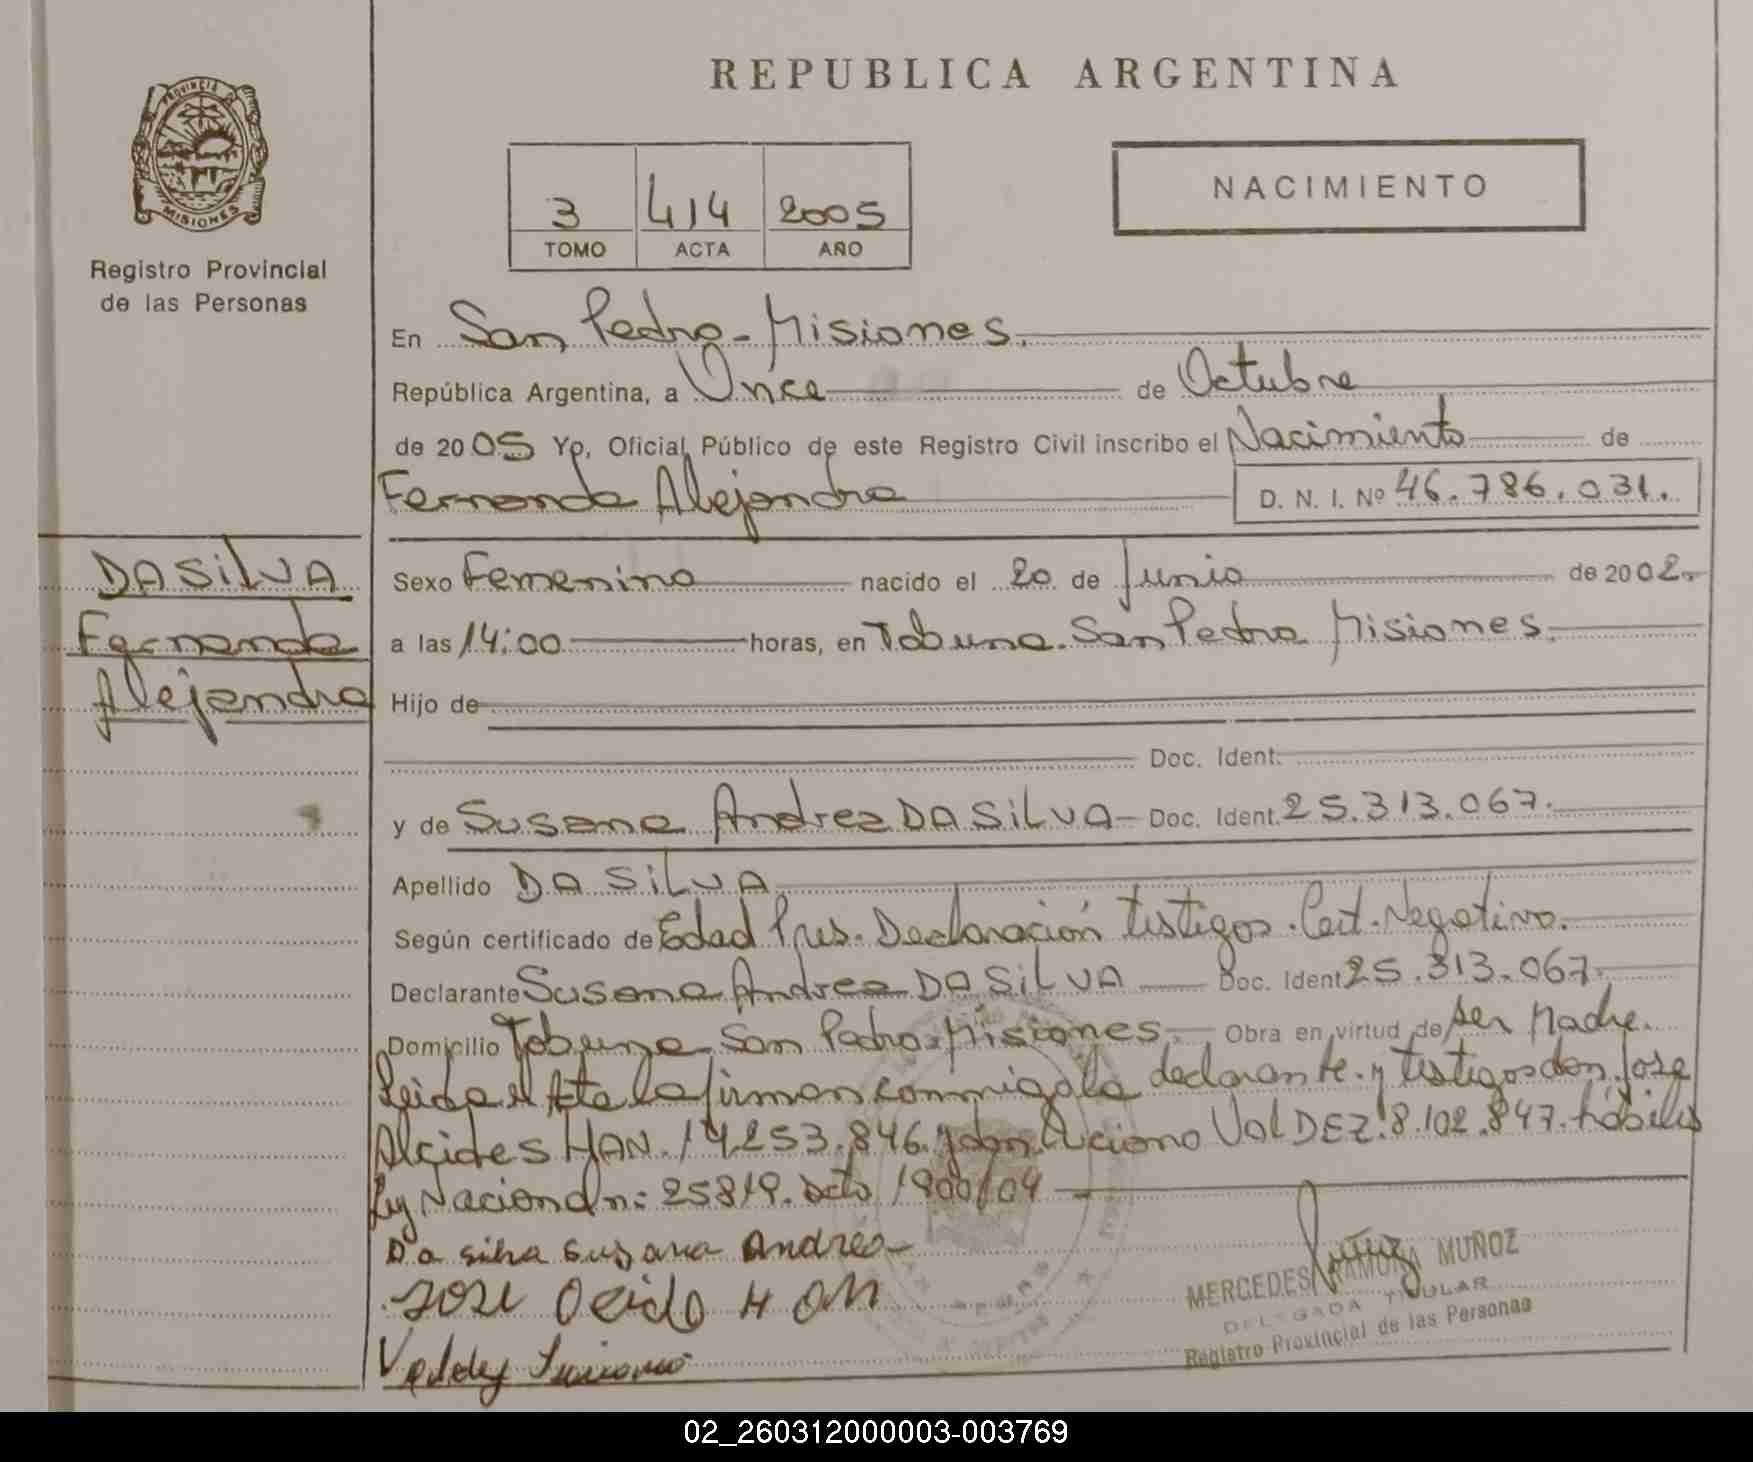 REPUBLICA ARGENTINA
PROVINCIA DE
MISIONES
Registro Provincial
de las Personas
3 414 2005
TOMO ACTA AÑO
NACIMIENTO
En San Pedro - Misiones.
República Argentina, a Once de Octubre
de 2005 Yo, Oficial Público de este Registro Civil inscribo el Nacimiento de
Fernanda Alejandra D. N. I. Nº 46.786.031.
DA SILVA
Fernanda
Alejandra
Sexo Femenino nacido el 20 de Junio de 2002.
a las 14:00 horas, en Tobuna. San Pedro Misiones.
Hijo de
Doc. Ident.
y de Susana Andrea DA SILVA - Doc. Ident. 25.313.067.
Apellido DA SILVA
Según certificado de Edad Pres. Declaración testigos. Cert. Negativo.
Declarante Susana Andrea DA SILVA Doc. Ident. 25.313.067.
Domicilio Tobuna San Pedro - Misiones. Obra en virtud de ser Madre.
Leida el Acta la firman conmigo la declarante y testigos don Jose
Alcides HAN. 14.253.846. y don Luciano ValDEZ. 8.102.847. hábiles
Ley Nacional n: 25819. Dcto 1900/04
Da silva Susana Andrea
JOSE HAN
MERCEDES RAMONA MUÑOZ
DELEGADA TITULAR
Registro Provincial de las Personas
02_260312000003-003769